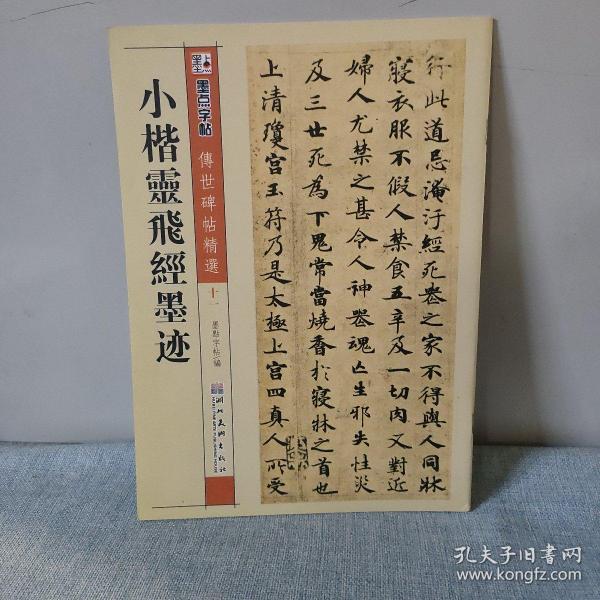 小楷靈飛經墨迹
墨点
墨点字帖
傳世碑帖精選
十一
墨點字帖 編
湖北美術出版社
行此道忌淹汙經死喪之家不得與人同牀
寢衣服不假人禁食五辛及一切肉又對近
婦人尤禁之甚令人神喪魂亡生邪失性災
及三世死為下鬼常當燒香於寢牀之首也
上清瓊宮玉符乃是太極上宮四真人所受
孔夫子旧书网
www.kongfz.com